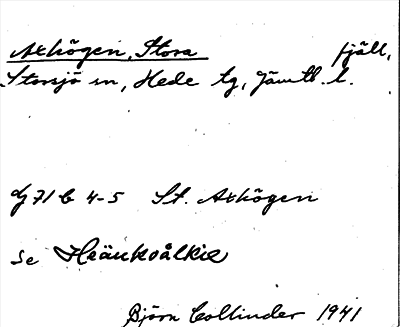 Axhögen, Stora fjäll,
Storsjö sn, Hede tg, Jämtl. l.
dj 71 b 4-5 St. Axhögen
se
Björn Collinder 1941